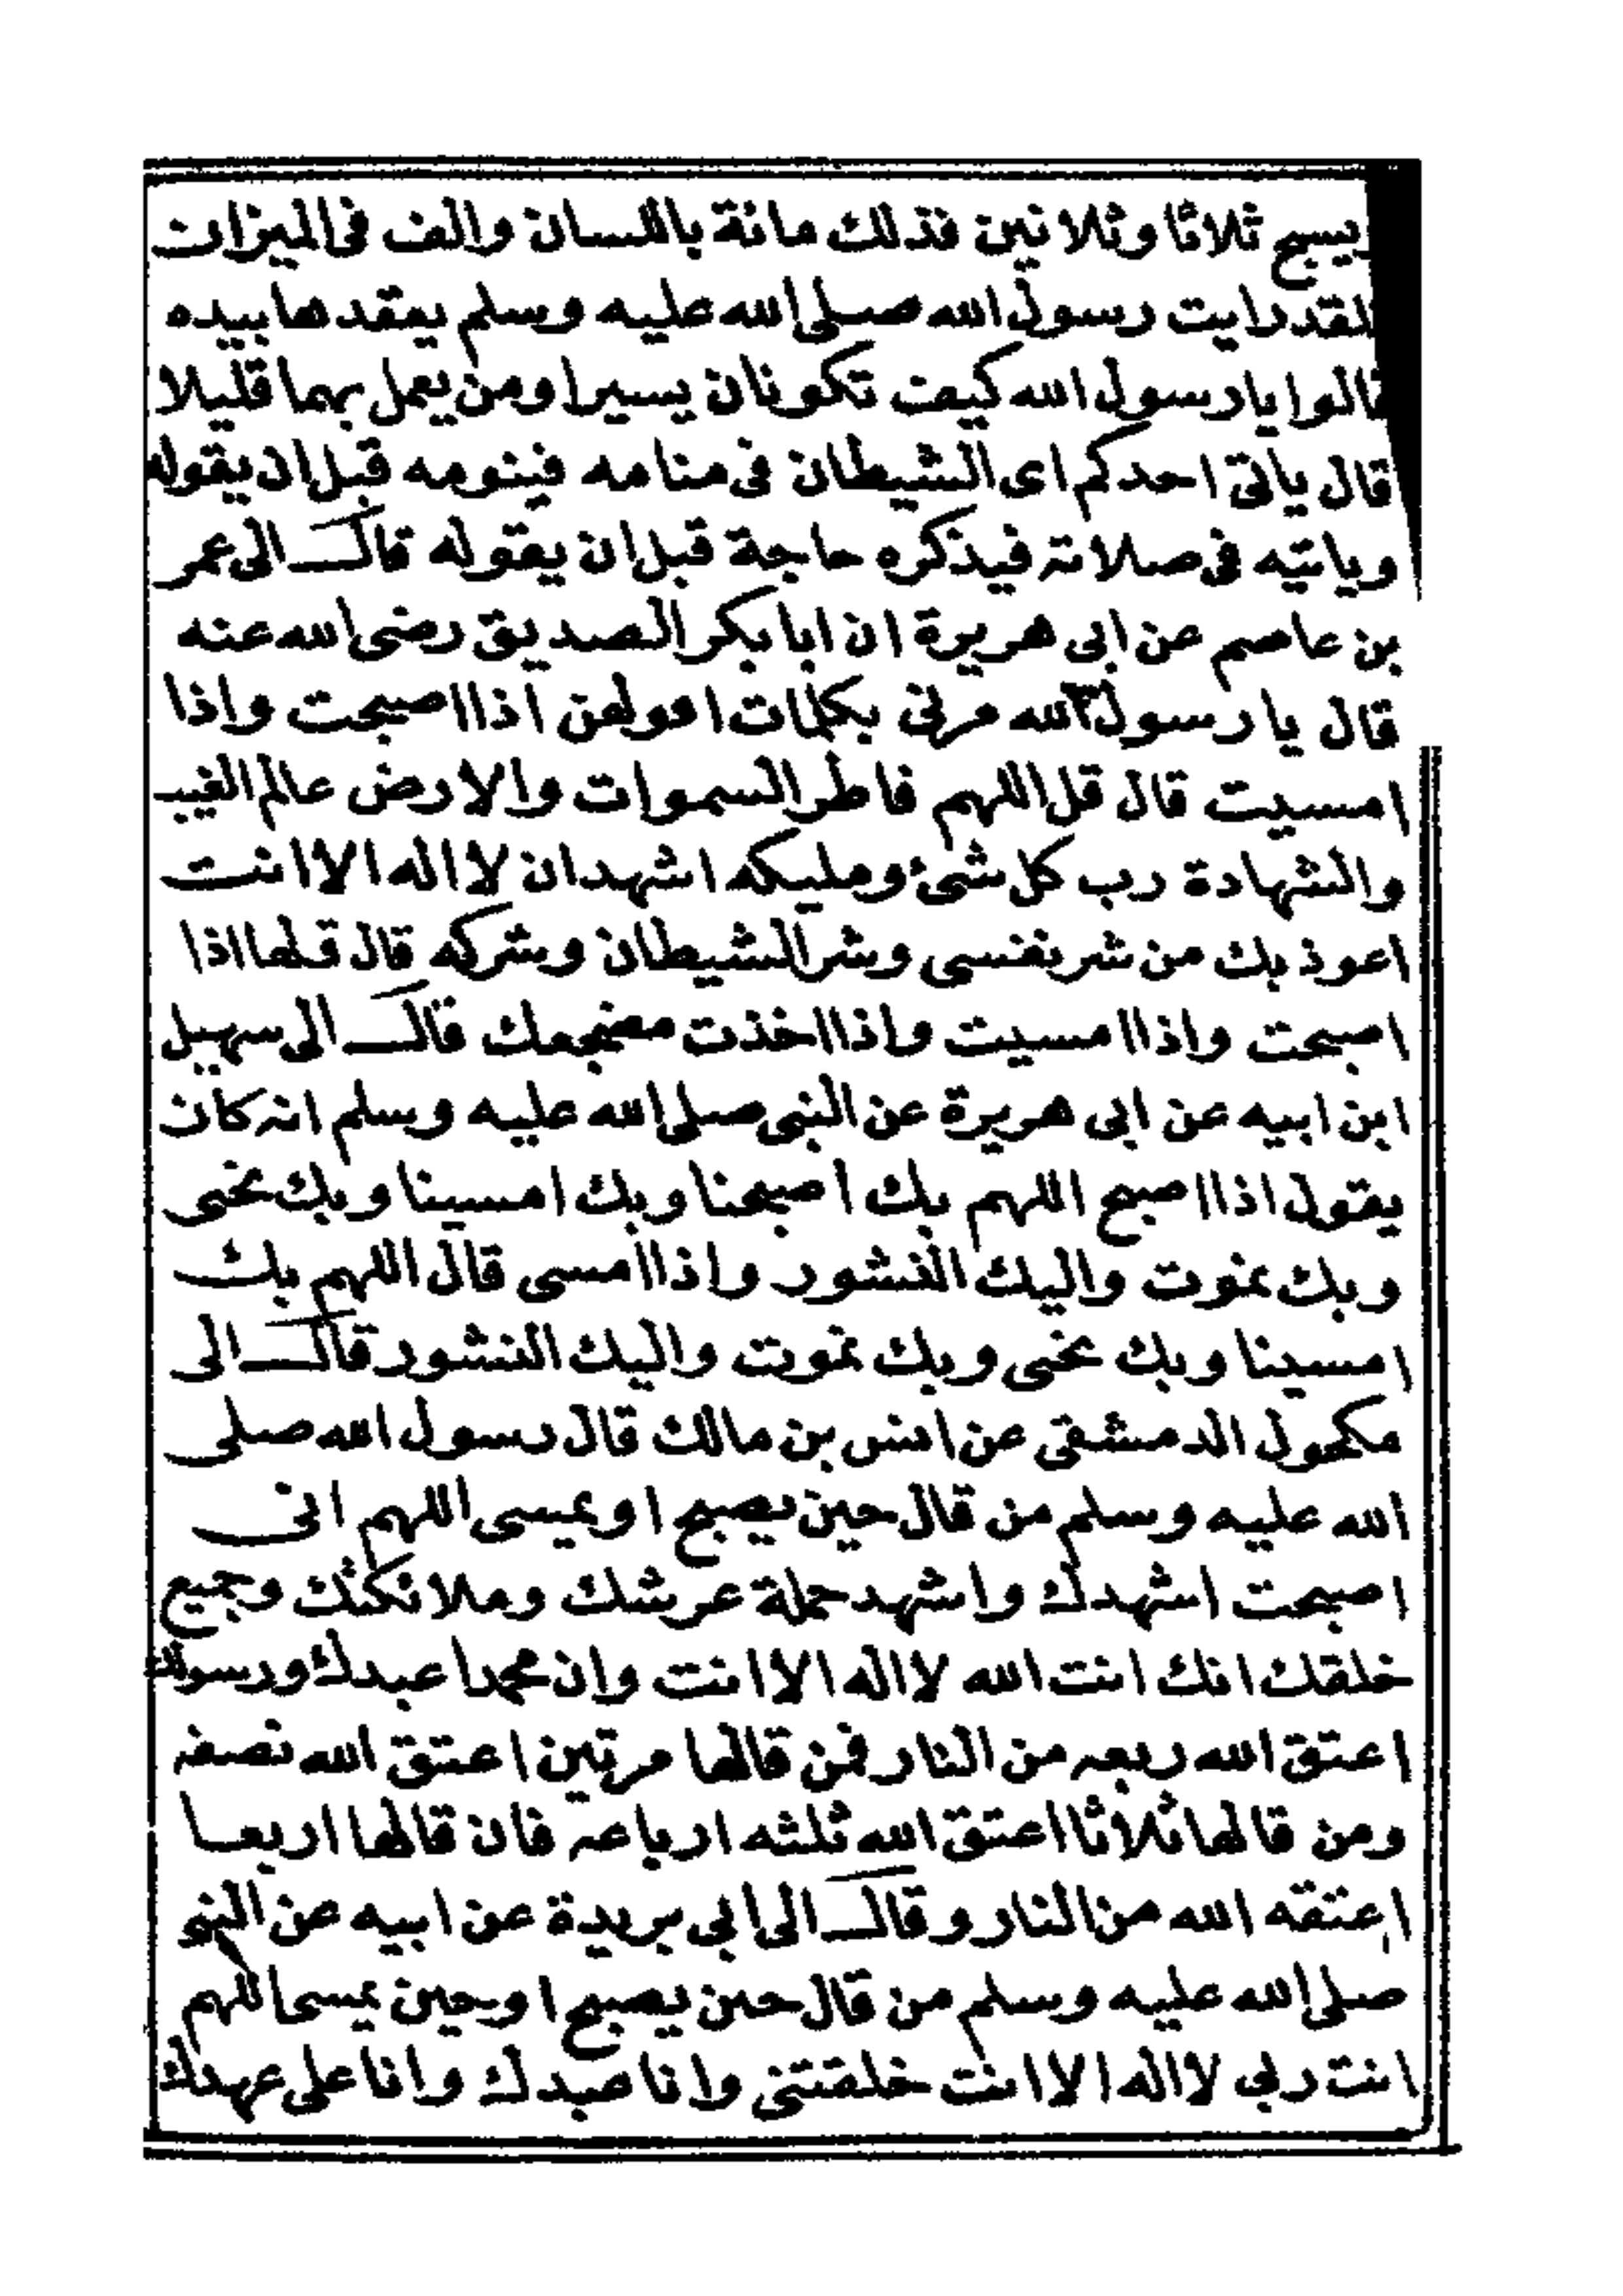 يسبح ثلاثا وثلاثين فذلك مائة باللسان والف فى الميزان
لقد رايت رسول الله صلى الله عليه وسلم يعقدها بيده
قالوا يا رسول الله كيف تكونان يسيرا ومن يعمل بهما قليلا
قال ياتى احدكم اى الشيطان فى منامه فينومه قبل ان يقوله
وياتيه فى صلاته فيذكره حاجة قبل ان يقوله قال الى عمر
بن عاصم عن ابى هريرة ان ابا بكر الصديق رضى الله عنه
قال يا رسول الله مرنى بكلمات اقولهن اذا اصبحت واذا
امسيت قال قل اللهم فاطر السموات والارض عالم الغيب
والشهادة رب كل شئ ومليكه اشهد ان لا اله الا انت
اعوذ بك من شر نفسى وشر الشيطان وشركه قال قلها اذا
اصبحت واذا امسيت واذا اخذت مضجعك قال الى سهيل
ابن ابيه عن ابى هريرة عن النبى صلى الله عليه وسلم انه كان
يقول اذا اصبح اللهم بك اصبحنا وبك امسينا وبك نحيى
وبك نموت واليك النشور واذا امسى قال اللهم بك
امسينا وبك نحيى وبك نموت واليك النشور قال الى
مكحول الدمشقى عن انس بن مالك قال رسول الله صلى
الله عليه وسلم من قال حين يصبح او يمسى اللهم انى
اصبحت اشهدك واشهد حملة عرشك وملائكتك وجميع
خلقك انك انت الله لا اله الا انت وان محمدا عبدك ورسولك
اعتق الله ربعه من النار فمن قالها مرتين اعتق الله نصفه
ومن قالها ثلاثا اعتق الله ثلثه ارباعه فان قالها اربعا
اعتقه الله من النار وقال الى ابي بريدة عن ابيه عن النبى
صلى الله عليه وسلم من قال حين يصبح او حين يمسى اللهم
انت ربى لا اله الا انت خلقتنى وانا عبدك وانا على عهدك